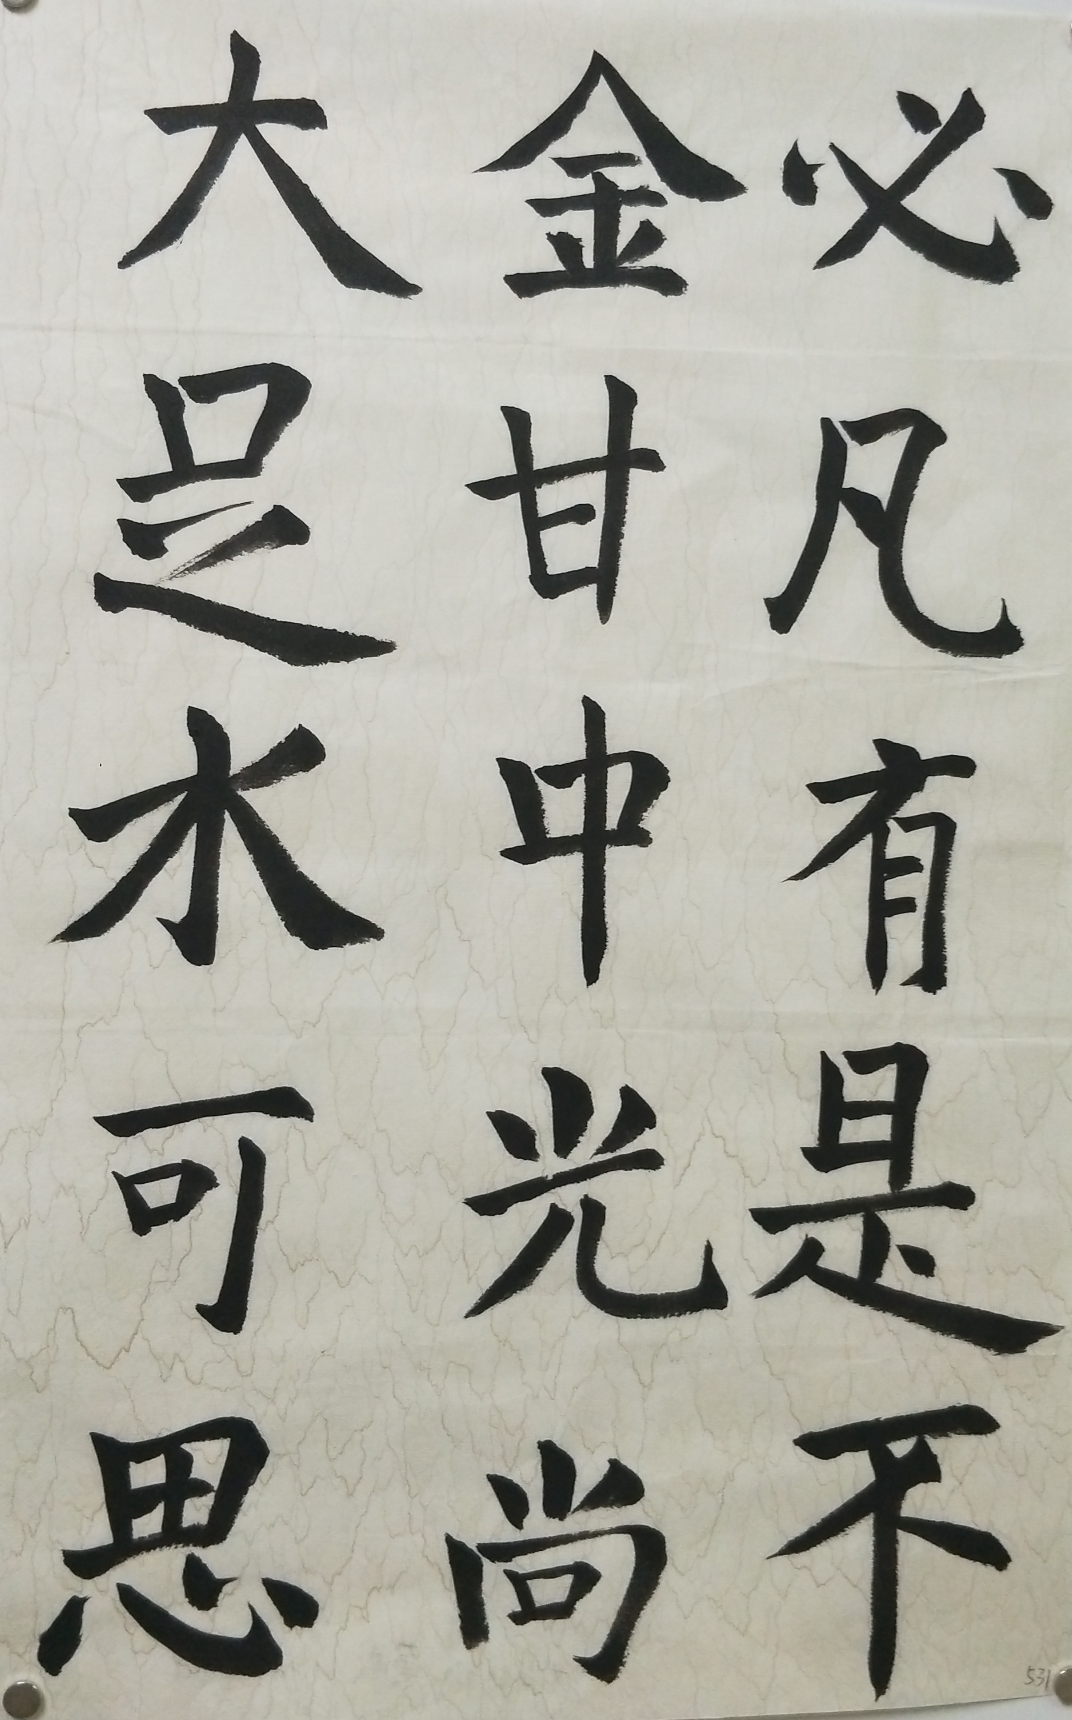 必凡有是不
金甘中光尚
大足水可思
531